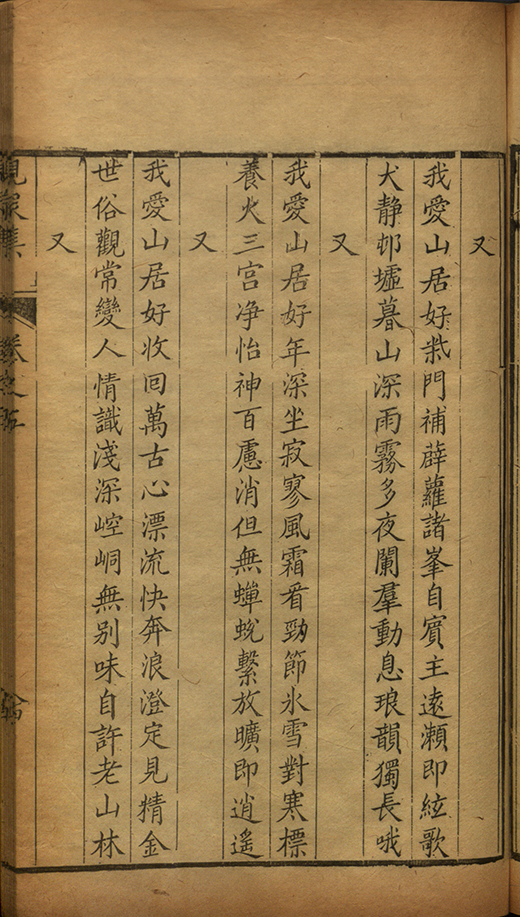 又
我愛山居好柴門補薜蘿諸峯自賓主遠瀨即絃歌
犬静邨墟暮山深雨霧多夜闌羣動息琅韻獨長哦
又
我愛山居好年深坐寂寥風霜看勁節氷雪對寒標
養火三宮净怡神百慮消但無蟬蛻繫放曠即逍遥
又
我愛山居好收回萬古心漂流快奔浪澄定見精金
世俗觀常變人情識淺深崆峒無别味自許老山林
又
卷之五